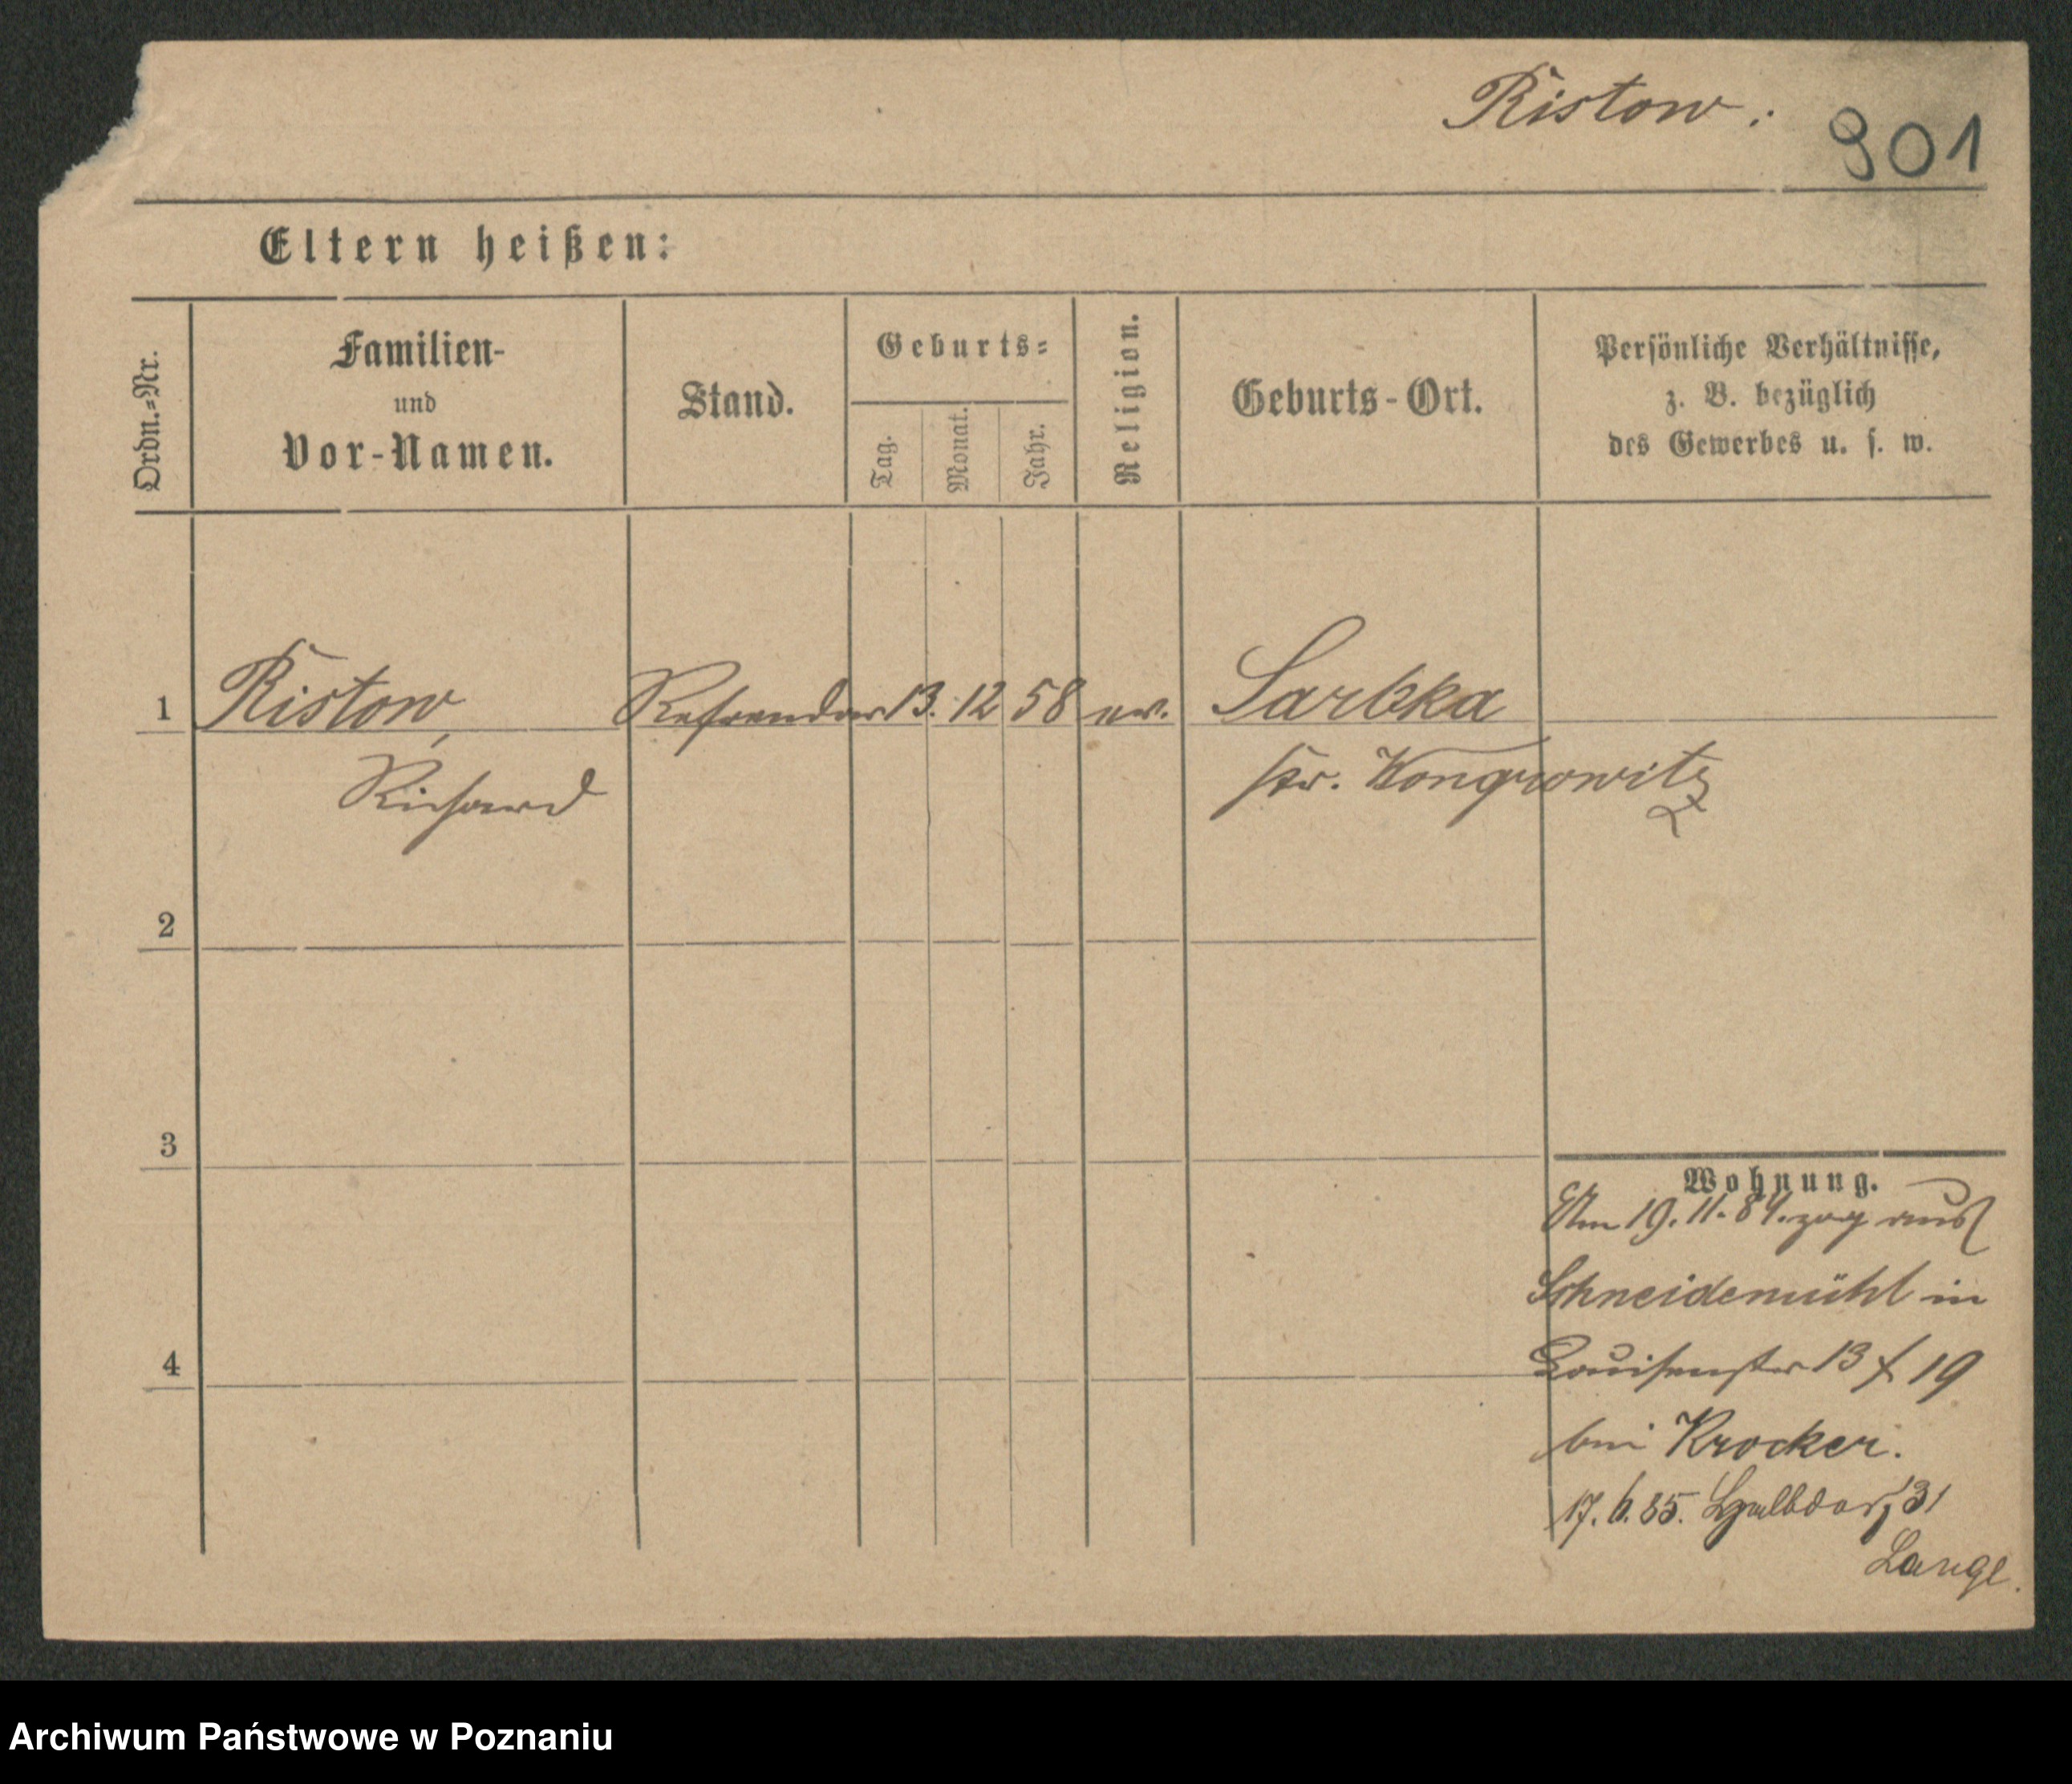 Ristow.
901
Eltern heißen:
Ordn.=Nr.
Familien-
und
Vor-Namen.
Stand.
Geburts=
Tag.
Monat.
Jahr.
Religion.
Geburts-Ort.
Persönliche Verhältnisse,
z. B. bezüglich
des Gewerbes u. s. w.
1 Ristow, Referendar 13. 12 58 ev. Sarbka
Richard Kr. Wongrowitz
2
3
Wohnung.
Am 19. 11. 84. zog aus
Schneidemühl in
4
Louisenstr 13 19
bei Krocker.
17. 6. 85. Halbdorf 31
Lange.
Archiwum Państwowe w Poznaniu